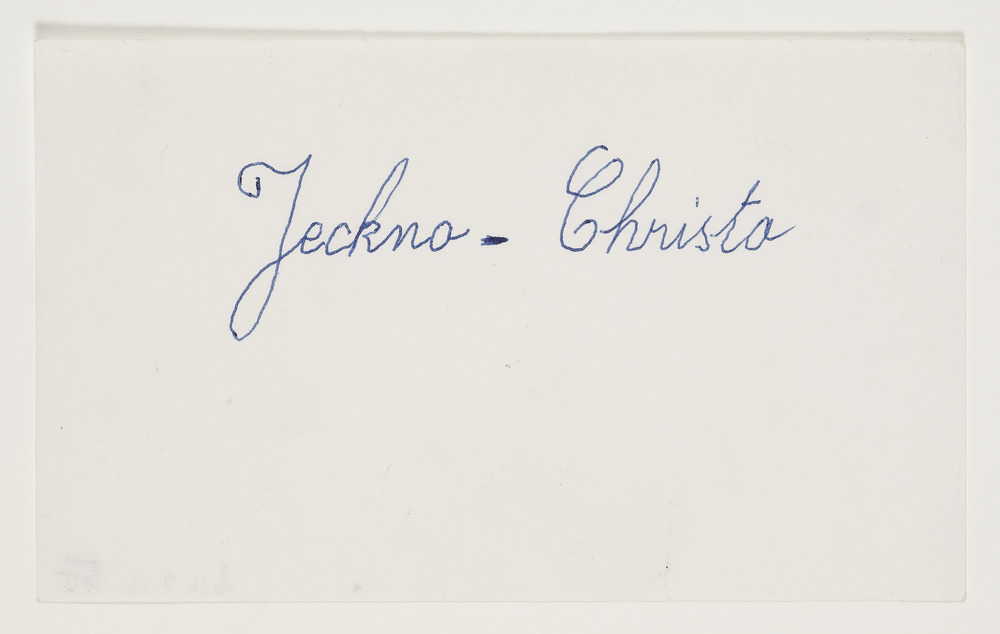 Jeckno - Christo